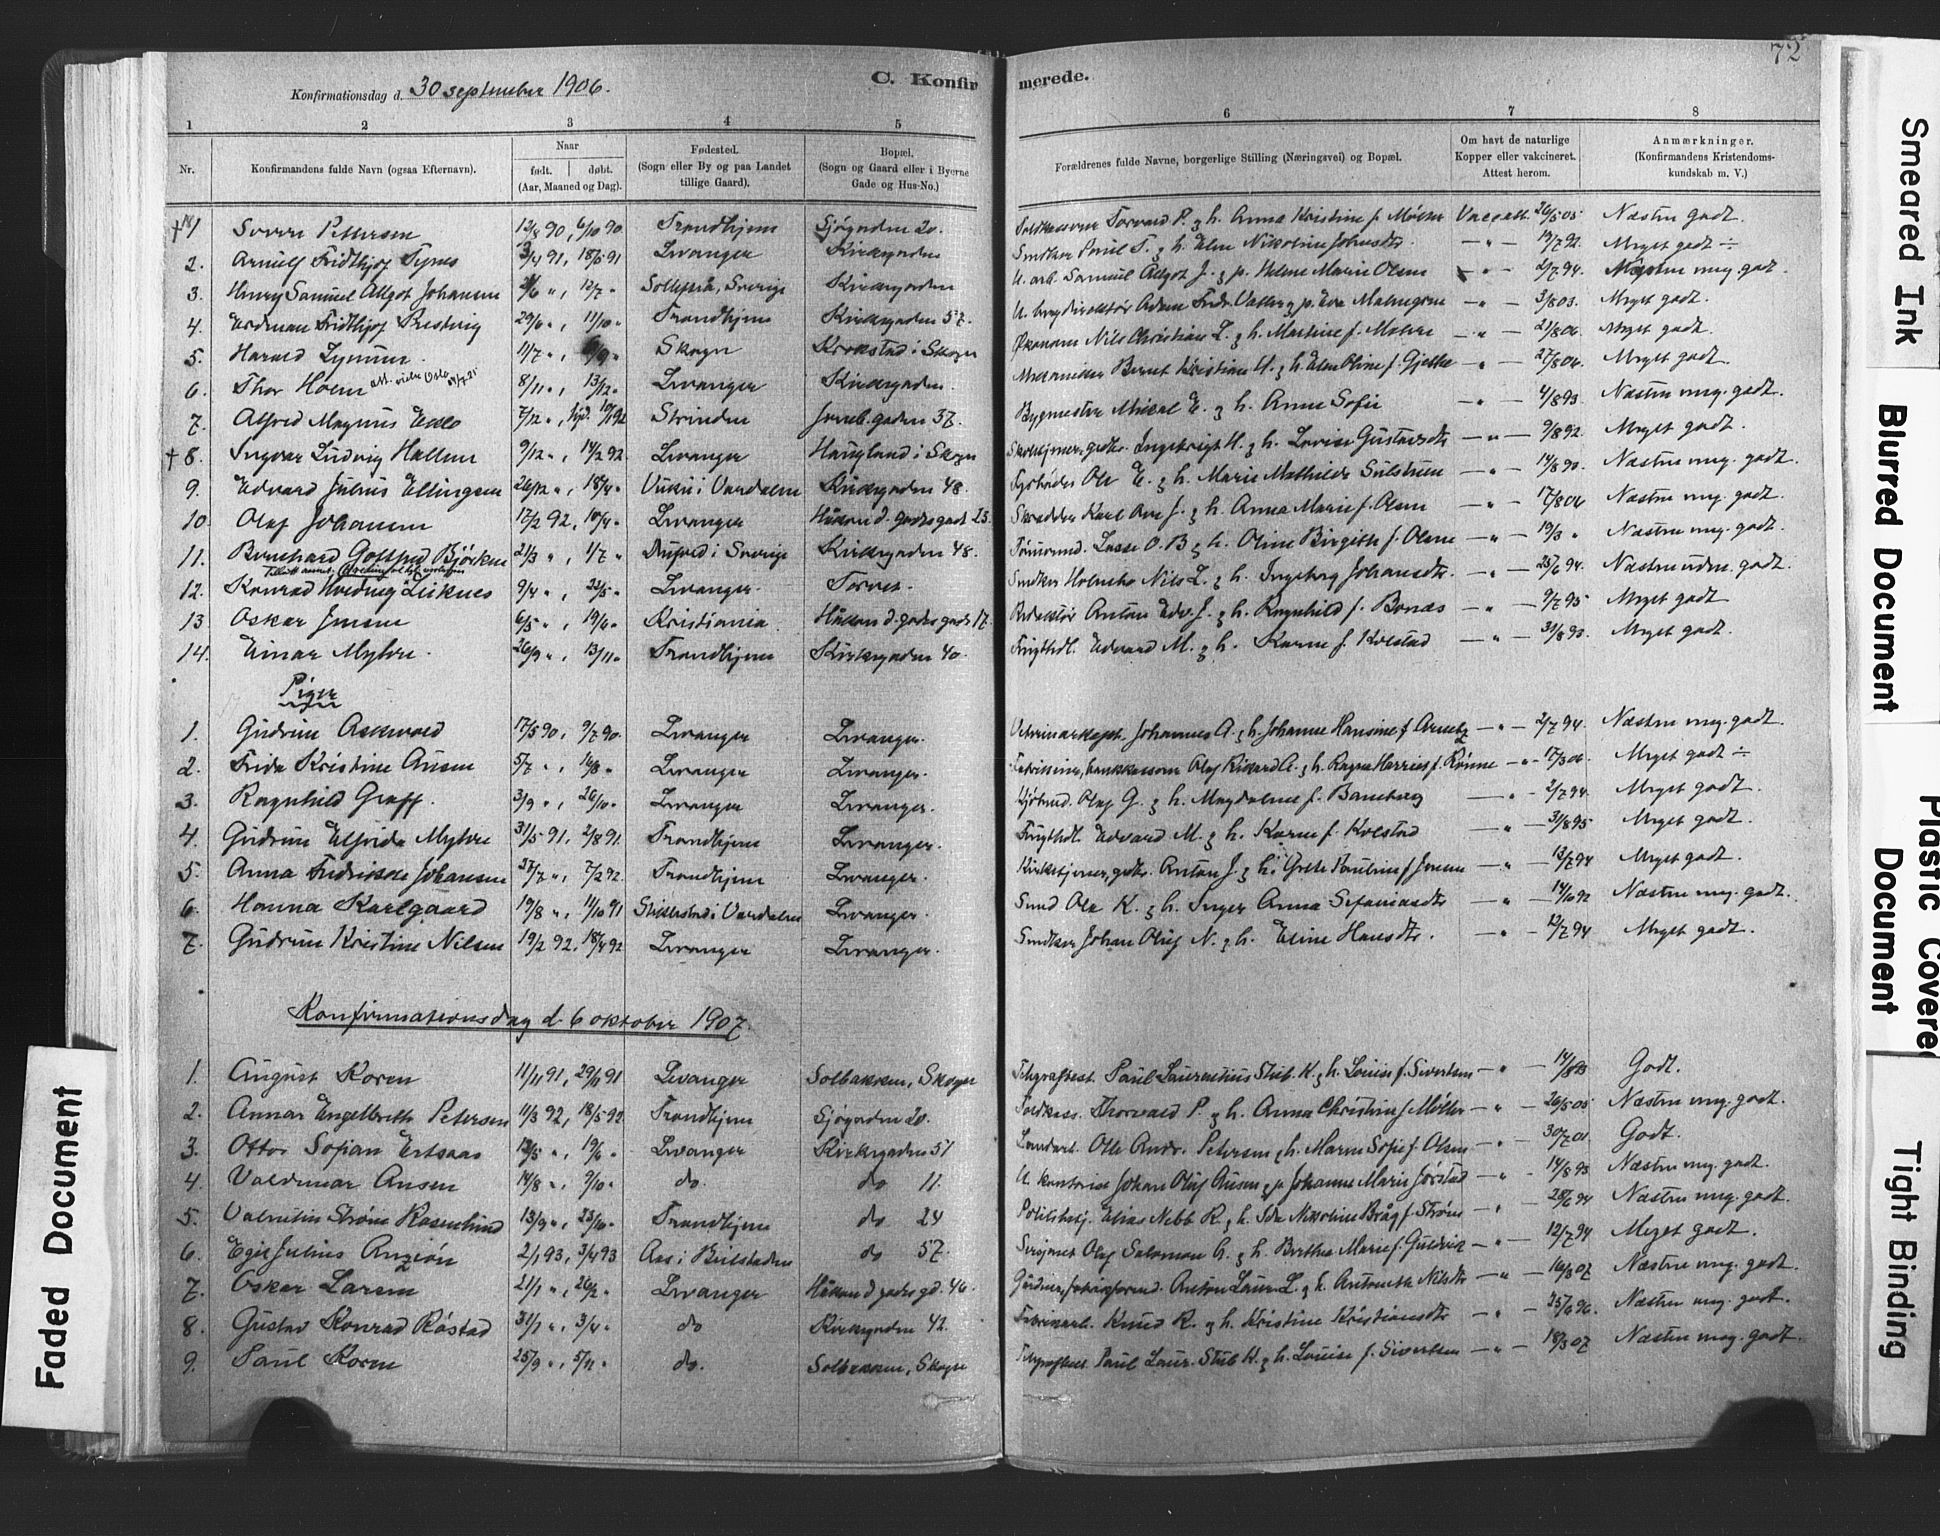 72
C. Konfirmerede.
Konfirmationsdag d. 30 september 1906.
1 2 3 4 5 6 7 8
Nr. Konfirmandens fulde Navn (ogsaa Efternavn). Naar født. døbt. (Aar, Maaned og Dag). Fødested. (Sogn eller By og paa Landet tillige Gaard). Bopæl. (Sogn og Gaard eller i Byerne Gade og Hus-No.) Forældrenes fulde Navne, borgerlige Stilling (Næringsvei) og Bopæl. Om havt de naturlige Kopper eller vakcineret. Attest herom. Anmærkninger. (Konfirmandens Kristendomskundskab m. V.)
1 Sverre Pettersen 12/8 90, 6/10 90 Trondhjem Sjøgaden 20. Toldkasserer Torvald P. g h. Anna Kristine f. Møller Vacc att. 26/5 05 Næsten godt.
2. Arnulf Fridthjof Tynes 3/4 91, 18/6 91 Levanger Kirkegaden Snedker Paul T. g h. Elen Nikoline Johnsdtr. — " — 19/7 92. Meget godt ÷
3. Henry Samuel Algot Johansen 12/7 " Sollefteå, Sverige Kirkegaden U. arb. Samuel Algot J. g p. Helene Marie Olsen " — 2/7 94. Næsten meg. godt.
4. Erdman Fridthjof Prestvig 29/6 ", 11/10 " Trondhjem Kirkegaden 57. — " — 3/8 03. Meget godt.
5. Harald Lynum. 11/7 ", Skogn Krokstad i Skogn Økonom Nils Christian L. g h. Martine f. Moksnes — " — 21/8 06 Meget godt.
6. Thor Hoem 8/11 ", 13/12 " Levanger Kirkegaden. Mekaniker Bernt Kristian H. g h. Elen Oline f. Gjelle — " — 27/8 06. Meget godt
7. Alfred Magnus Eklo 7/12 ", Strinden Jernb. gaden 37. Bygmester Mikal E. g h. Anne Sofie — " — 4/8 93 Næsten meg. godt.
† 8. Ingvar Ludvig Hallem 9/12 ", 14/2 92. Levanger Haugland i Skogn Ingebrigt H. g h. Lovise Gustavsdtr — " — 9/8 92. Meget godt.
9. Edvard Julius Ellingsen 26/12 ", 18/4 " Vuku i Værdalen Kirkegaden 48. Ole E. g h. Marie Mathilde Sulstuen — " — 14/8 90. Næsten meg. godt.
10. Olaf Johansen 17/2 92, 10/4 " Levanger Håkon d. godes gade 23. Skrædder Karl Ove J. g h. Anna Marie f. Olsen — " — 17/8 06 Næsten meg. godt.
11. Bernhard Gotthed Björken 21/3 ", 1/7 " i Sverige Kirkegaden 48. Lasse O. B g h. Oline Birgith f. Olsen — " — 19/3 " Næsten meg. godt.
12. Konrad Hvidveg Leiknes 9/4 ", 23/5 " Levanger. Torvet. Snedker Nils L. g h. Ingeborg Johansdtr. — " — 23/6 94. Næsten uden. godt.
13. Oskar Jensen 6/5 ", 19/6 " Kristiania. Håkon d. godes gade 17. Redaktør Anton Edv. J. g h. Ragnhild f. Bonæs — " — 9/7 95 Meget godt
14. Einar Myhre. 26/9 ", 13/11 " Trondhjem Kirkegaden 40. Frugthdl. Edvard M. g h. Karen f. Kolstad — " — 31/8 93. Meget godt.
Piger
1. Gudrun Askevold 17/5 90, 9/7 90. Levanger Levanger. Johannes A. g h. Johanne Hansine f. — " — 2/7 94. Næsten meg. godt.
2. Frida Kristine Ausen 5/7 ", 14/8 " Levanger Levanger. Olaf Rikard A. g h. Ragna f. Rønne — " — 17/3 06. Meget godt ÷
3. Ragnhild Graff. 3/9 ", 26/10 " Levanger Levanger. Kjøbmd. Olaf G. g h. Magdalene f. Baneberg — " — 2/7 94. Meget godt.
4. Gudrun Elfrida Myhre 31/5 91, 2/8 91. Trondhjem Levanger. Frugthdl. Edvard M. g h. Karen f. Kolstad — " — 31/8 95 Meget godt.
5. Anna Fredrikke Johansen 27/7 ", 7/2 92. Trondhjem Levanger. Anton J. g h. Grete Pauline f Jensen — " — 13/7 94 Meget godt.
6. Hanna Karlgaard 19/8 ", 11/10 91 Stiklestad i Værdalen Levanger. Smed Ole K. g h. Inger Anna Sefaniasdtr — " — 14/10 92 Næsten meg. godt.
7. Gudrun Kristine Nilsen 19/2 92. 18/4 92 Levanger Levanger. Snedker Johan Oluf N. g h. Eline Hansdtr. — " — 12/7 94 Meget godt.
Konfirmationsdag d. 6 oktober 1907.
1. August Koren 11/11 91, 29/11 91 Levanger Solbakken, Skogn Telegrafbest. Paul Laurentius Stub K. g h. Louise f. Sivertsen — " — 14/8 93 Godt.
2. Annar Engelbreth Petersen 11/3 92, 18/5 92 Trondhjem Sjøgaden 20. Toldkass. Thorvald P. g h. Anna Christine f Møller — " — 26/5 05 Næsten meg. godt.
3. Ottar Sofian Ertsaas 12/5 ", 19/6 " Levanger Kirkegaden 51 Ole Andr. Petersen g h. Maren Sofie f. Olsen — " — 30/7 01. Godt.
4. Valdemar Ausen 14/8 ", 9/10 " do. do 11. U. kontorist Johan Oluf Ausen g p Johanne Marie Jørstad — " — 14/8 93 Næsten meg. godt.
5. Valentin Strøm Rosenlund 13/9 ", 23/10 " Trondhjem do 24 Politibetj. Elias Nebb R. g h. Ida Nikoline Bråg f. Strøm — " — 28/6 94 Næsten meg. godt.
6. Egil Julius Anzión 2/1 93, 3/4 93 Aas i Beitstaden do 57. Olaf Salomon A. g h. Berthe Marie f. Guldvik — " — 12/7 94 Meget godt.
7. Oskar Larsen 21/1 ", 26/2 " Levanger Håkon d godes gd. 46. Anton Laur. L. g h. Antonette Nilsdtr — " — 16/3 07 Næsten meg. godt.
8. Gustav Konrad Røstad 31/1 ", 3/4 " do Kirkegaden 42. Knud R. g h. Kristine Kristiansdtr — " — 25/6 96. Næsten meg. godt.
9. Paul Koren 25/9 ", 5/11 " do. Solbakken, Skogn Telegrafbest. Paul Laur. Stub K. g h. Louise f. Sivertsen — " — 18/3 07 Næsten meg. godt.
Faded Document
Smeared Ink
Blurred Document
Plastic Covered Document
Tight Binding